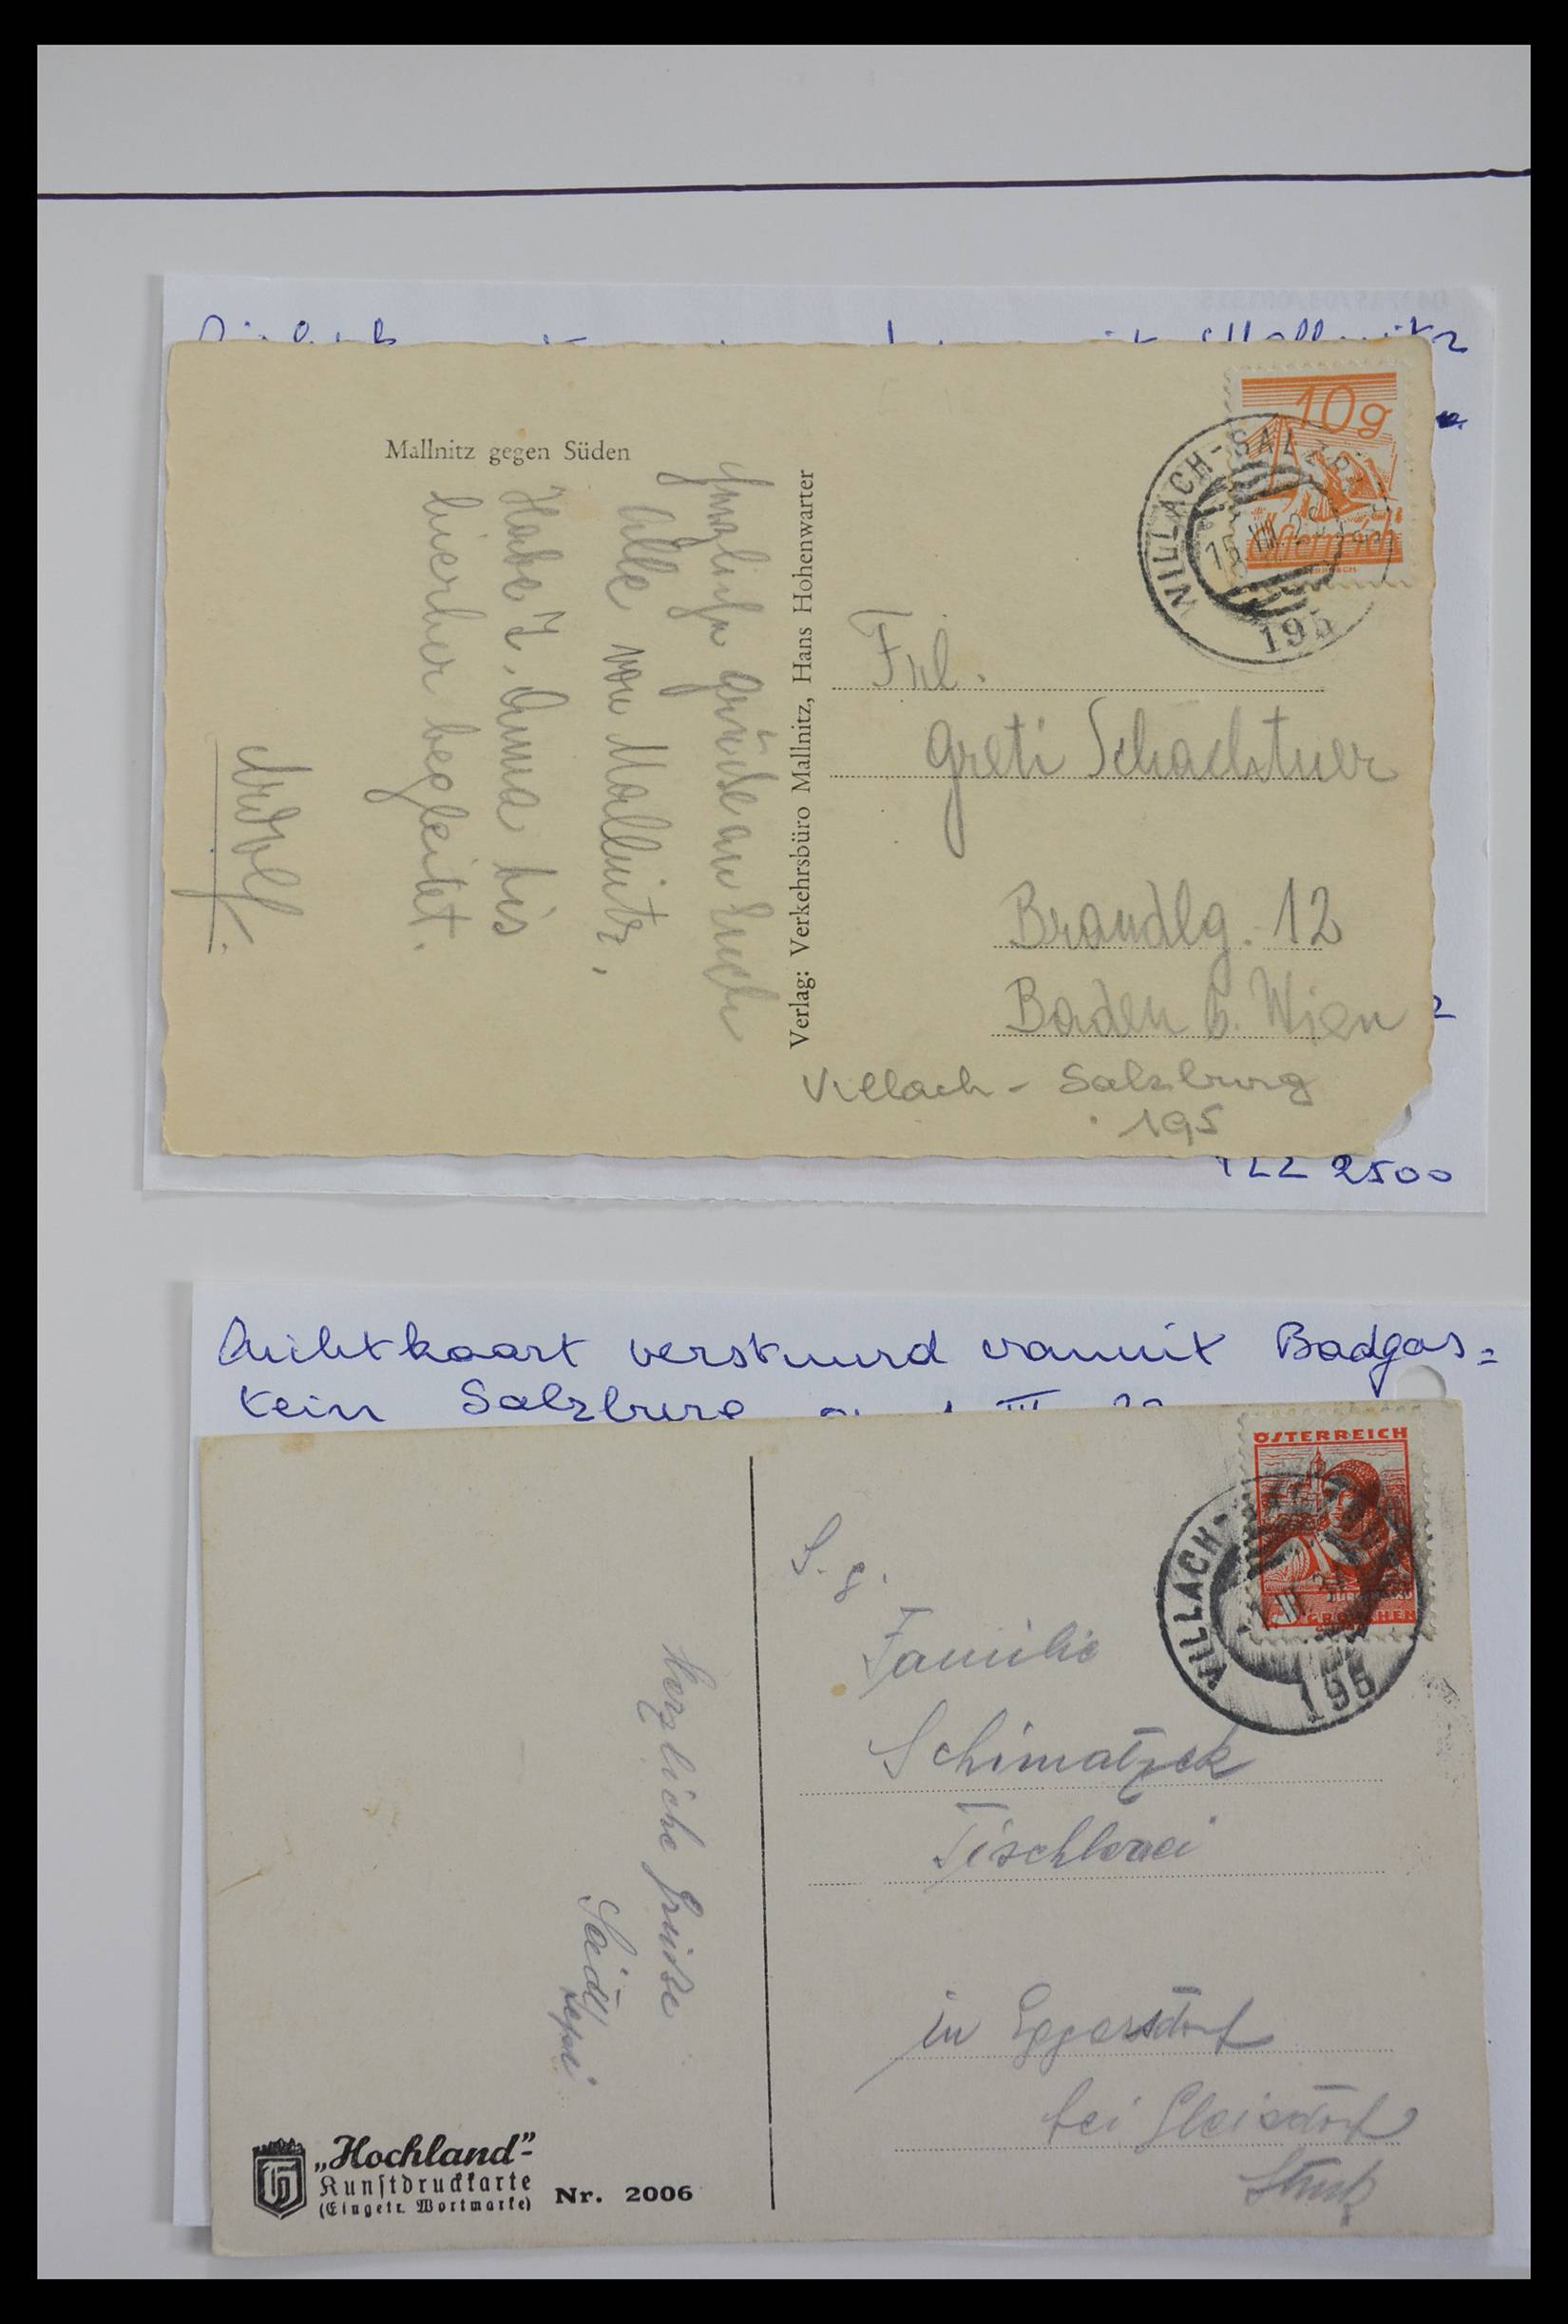 Mallnitz
Mallnitz gegen Süden
Herzliche Grüße an Euch
Alle von Mallnitz.
Habe T. Anna bis
hierher begleitet.
Adolf.
Verlag: Verkehrsbüro Mallnitz, Hans Hohenwarter
10g
Österreich
VILLACH-SALZB
195
Frl.
Greti Schachtner
Brandlg. 12
Baden b. Wien
Villach - Salzburg
195
2500
Zichtkaart verstuurd vanuit Badgas=
tein Salzburg III
ÖSTERREICH
GROSCHEN
VILLACH-
195
S. g.
Familie
Schimatzek
Tischlerei
in Eggersdorf
bei Gleisdorf
Herzliche Grüße
Sepi
„Hochland"-
Kunstdruckkarte
(Eingetr. Wortmarke) Nr. 2006